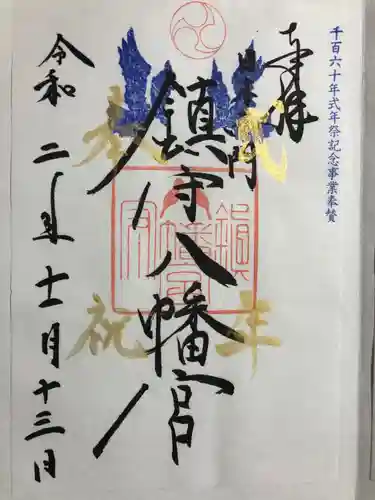 千百六十年式年祭記念事業奉賛
奉拝
鎮守八幡宮
奉
祝
式
年
令和二年十一月十三日